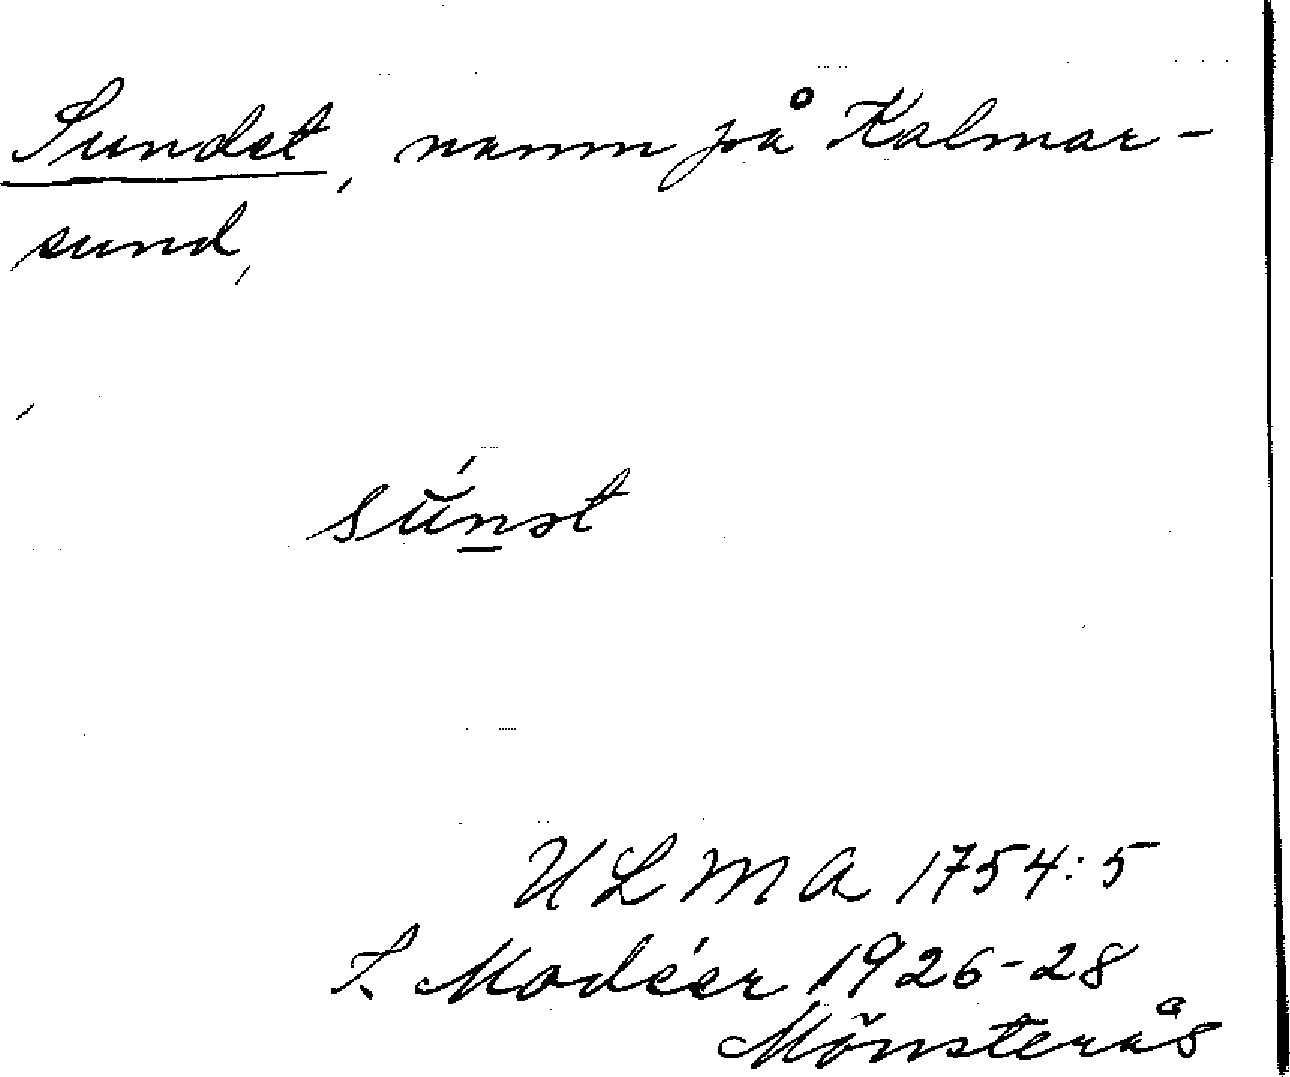 Sundet, namn på Kalmar-
sund,
sŭ́n̲ət
ULMA 1754:5
I. Modéer 1926-28
Mönsterås